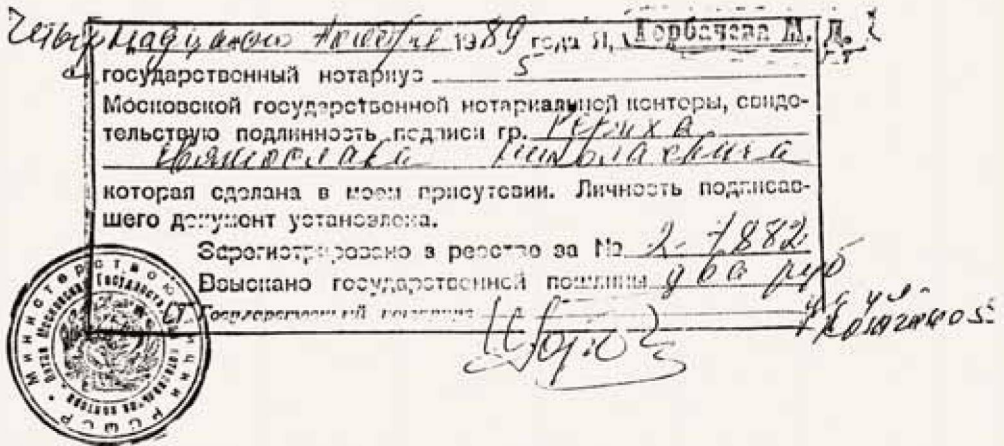 Четырнадцатого ноября 1989 года Я, Горбачева М. Д.
государственный нотариус 5
Московской государственной нотариальной конторы, свиде-
тельствую подлинность подписи гр. Рериха
Святослава Николаевича
которая сделана в моем присутсвии. Личность подписав-
шего документ установлена.
Зарегистрировано в реестре за № 2-7882
Взыскано государственной пошлины два руб
Государственный нотариус
Министерство юстиции РСФСР
Пятая Московская государственная нотариальная контора